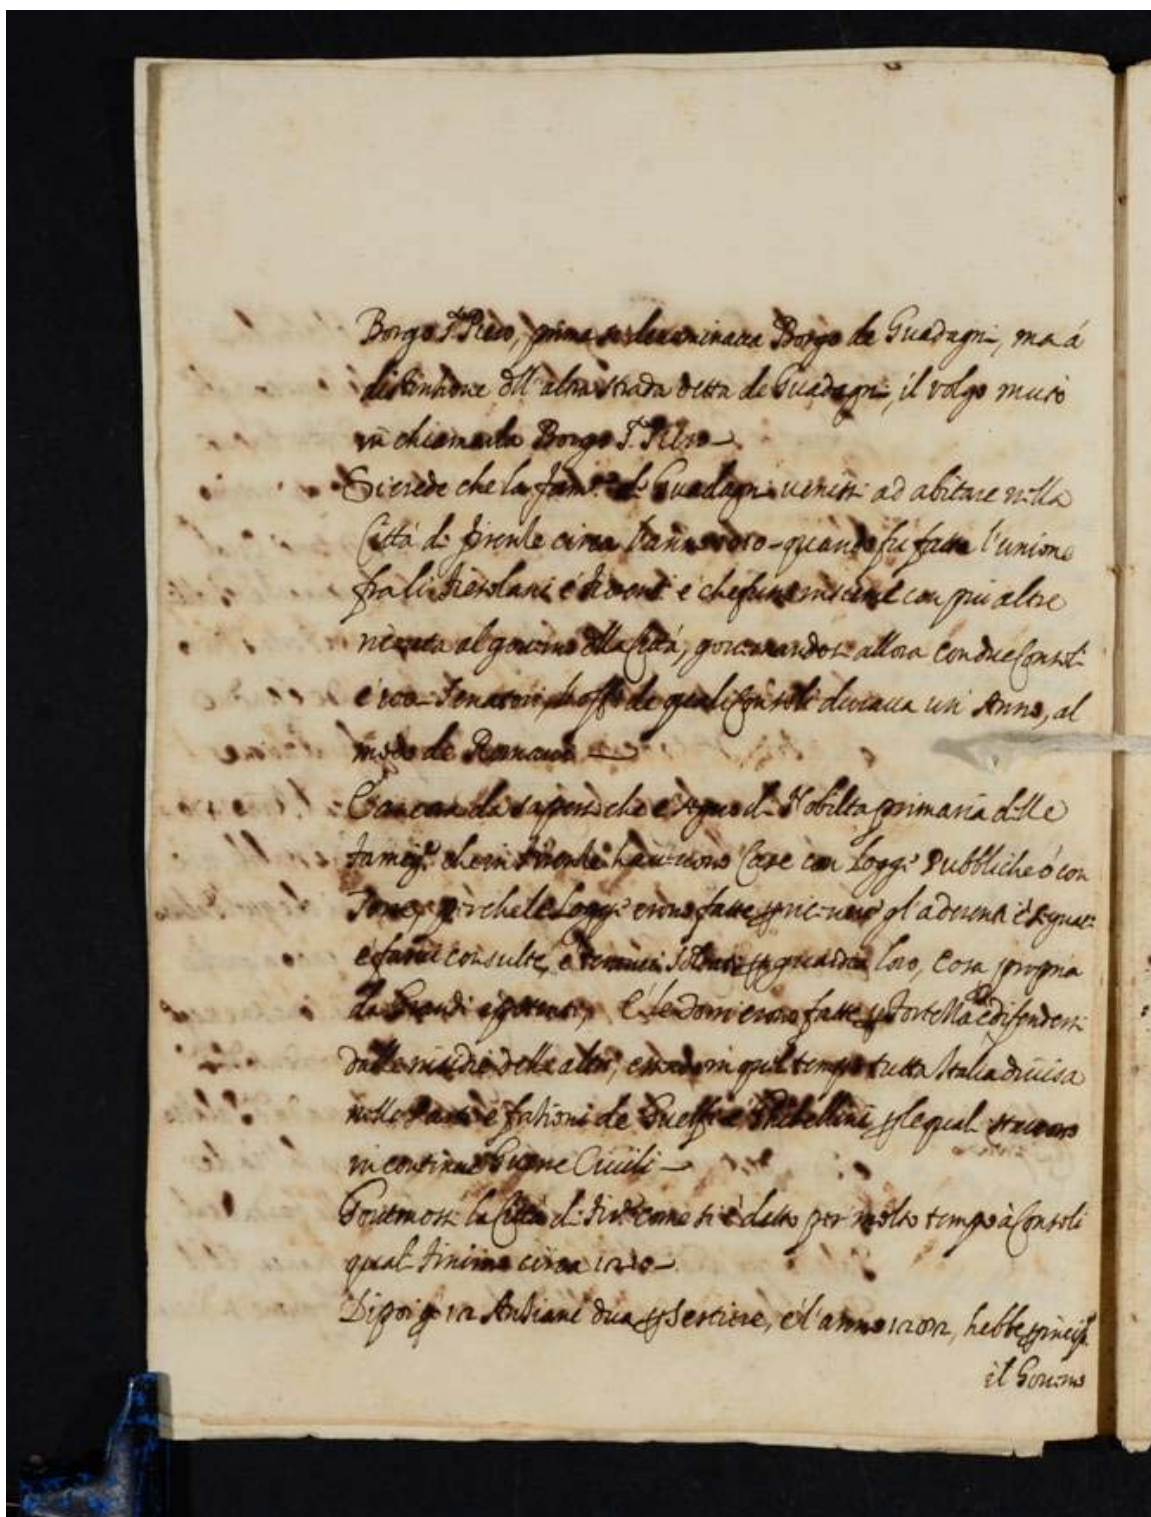 Borgo S. Piero, prima si denominava Borgo de Guadagni, ma á
distintione dll' altra strada detta de Guadagni, il volgo mutò
in chiamarla Borgo S. Piero
Si crede che la fam.ª d. Guadagni veniss: ad abitare nella
Città di firenle circa l'anno 1010 - quando fu fatta l'unione
fra li fiesolani é fioren: é che fusse insieme con piu altre
al governo dlla Città, governandosi allora con due Consoli
é 100 Senatori, de quali Consoli durava un Anno, al
modo de Romani
é ancora da sapersi che é segno d. Nobilta primaria delle
fameg.e che in firenle havevono Case con Logge Pubbliche ó con
Torre, perche le Logge erono fatte p riceuere gl'aderenti é seguaci
é farui consulte, é p guardia loro, cosa propria
da Grandi é potenti, é le Torri erono fatte p fortezza é difendersi
dalle insidie delle altre, essendo in quel tempo tutta Italia diuisa
nelle Parti é fationi de Guelfi é Ghibellini, p le quali stavano
in continue Guerre Ciuili
Gouernossi la Città di Fir.e come si é detto per molto tempo à Consoli
quali finirno circa 1210
Dipoi p 12 Antiani dua p Sestiere, é l'anno 1282, hebbe princip.
il Gouerno